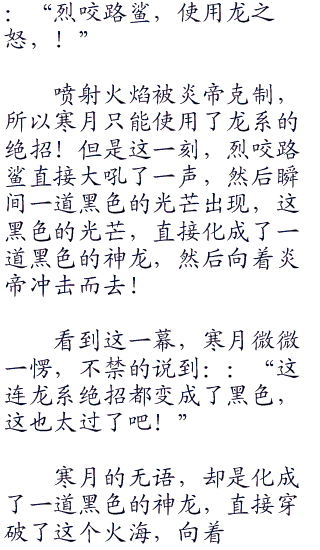 ：“烈咬路鲨，使用龙之
怒，！”
喷射火焰被炎帝克制，
所以寒月只能使用了龙系的
绝招！但是这一刻，烈咬路
鲨直接大吼了一声，然后瞬
间一道黑色的光芒出现，这
黑色的光芒，直接化成了一
道黑色的神龙，然后向着炎
帝冲击而去！
看到这一幕，寒月微微
一愣，不禁的说到：：“这
连龙系绝招都变成了黑色，
这也太过了吧！”
寒月的无语，却是化成
了一道黑色的神龙，直接穿
破了这个火海，向着